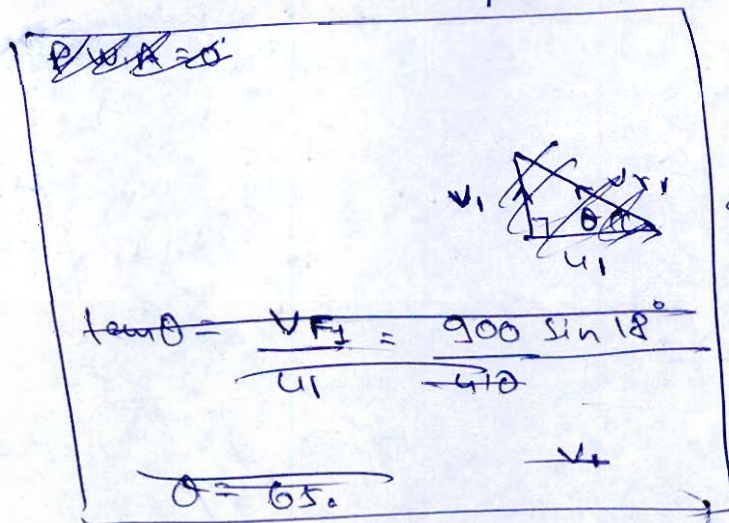 V₁
θ
u₁
tanθ = VF₁ / u₁ = 900 sin 18° / 410
V₁
θ = 65.